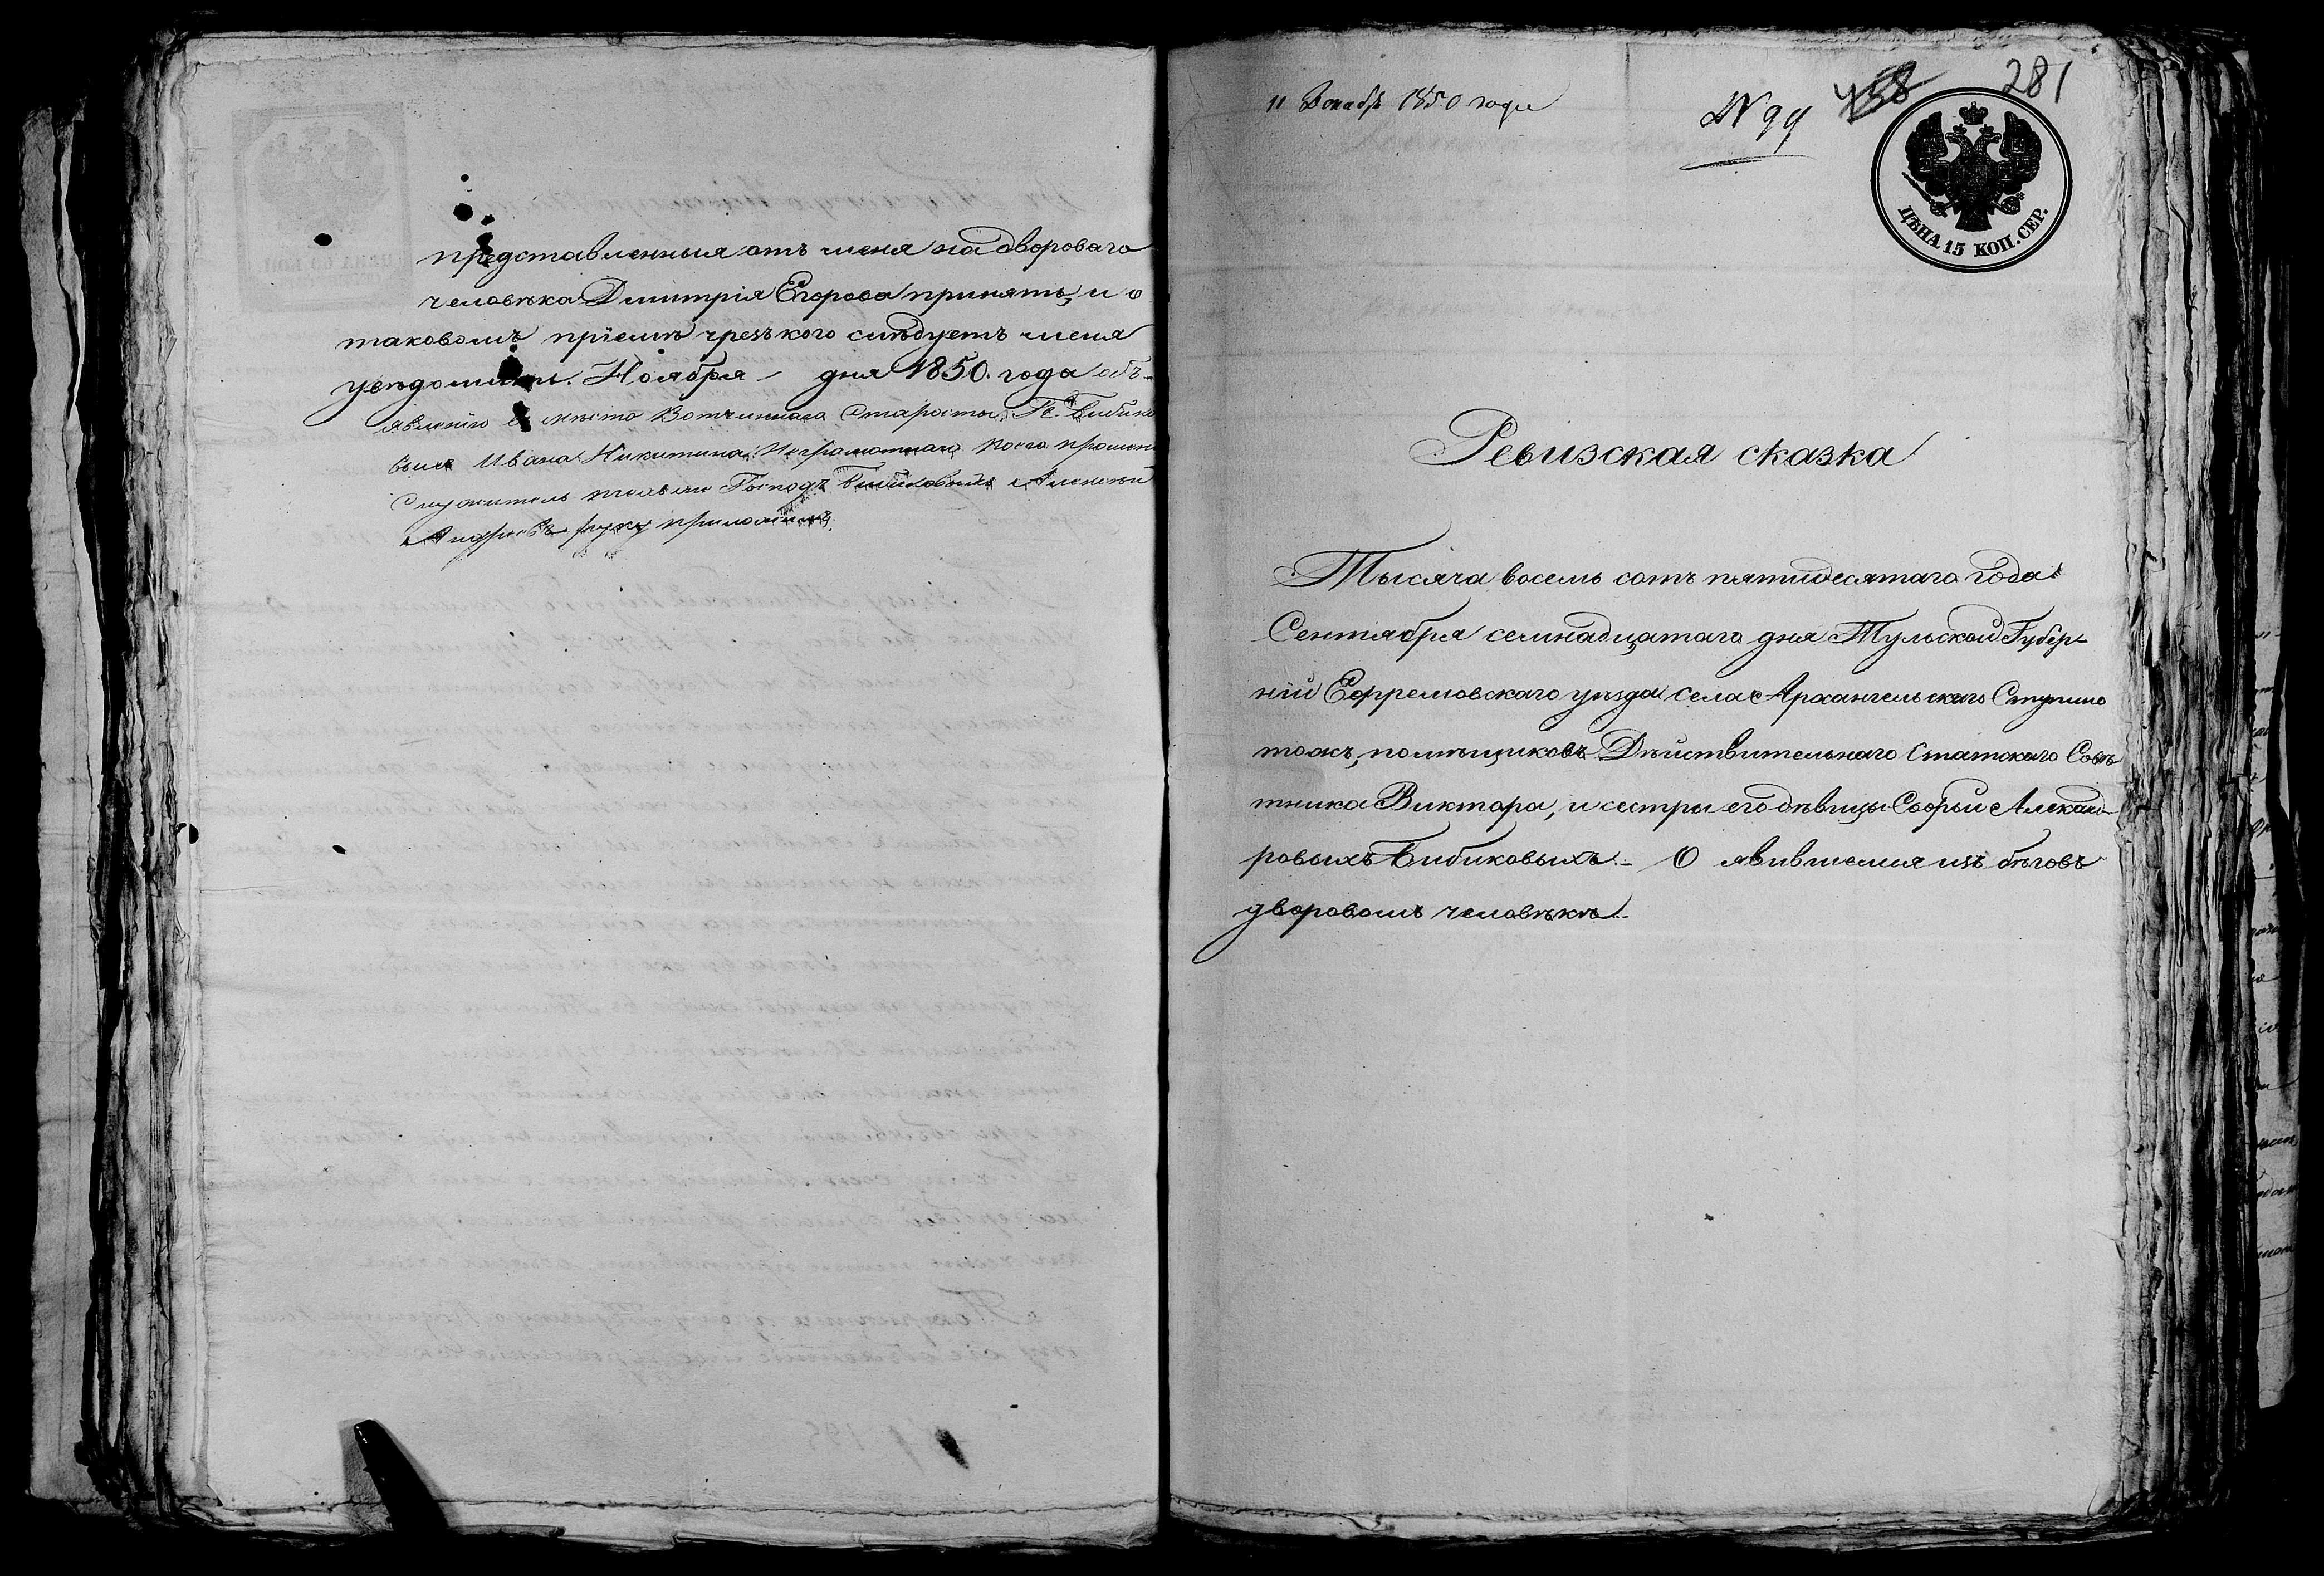 представленныя отъ меня на двороваго
человѣка Дмитрія Егорова принять, и о
таковомъ пріемѣ чрезъ кого слѣдуетъ меня
увѣдомить. Ноября дня 1850. года объ-
явленію в мѣсто Вотчиннаго Старосты Гг. Бибико
выхъ Ивана Никитина Неграмотнаго
Служитель Господъ Бибиковыхъ Алексѣй
Андреевъ руку приложилъ.
11 Декабр 1850 года
№ 99
458
281
ЦѢНА 15 КОП. СЕР.
Ревизская сказка
Тысяча восемь сотъ пятидесятаго года
Сентября семнадцатаго дня Тульской Губер-
ніи Ефремовскаго уѣзда села Архангельскаго Ступино
тожъ, помѣщиковъ Дѣйствительнаго Статскаго Совѣ
тника Виктора, и сестры его дѣвицы Софьи Александ-
ровыхъ Бибиковыхъ. О явившемся изъ бѣговъ
дворовомъ человѣкѣ.